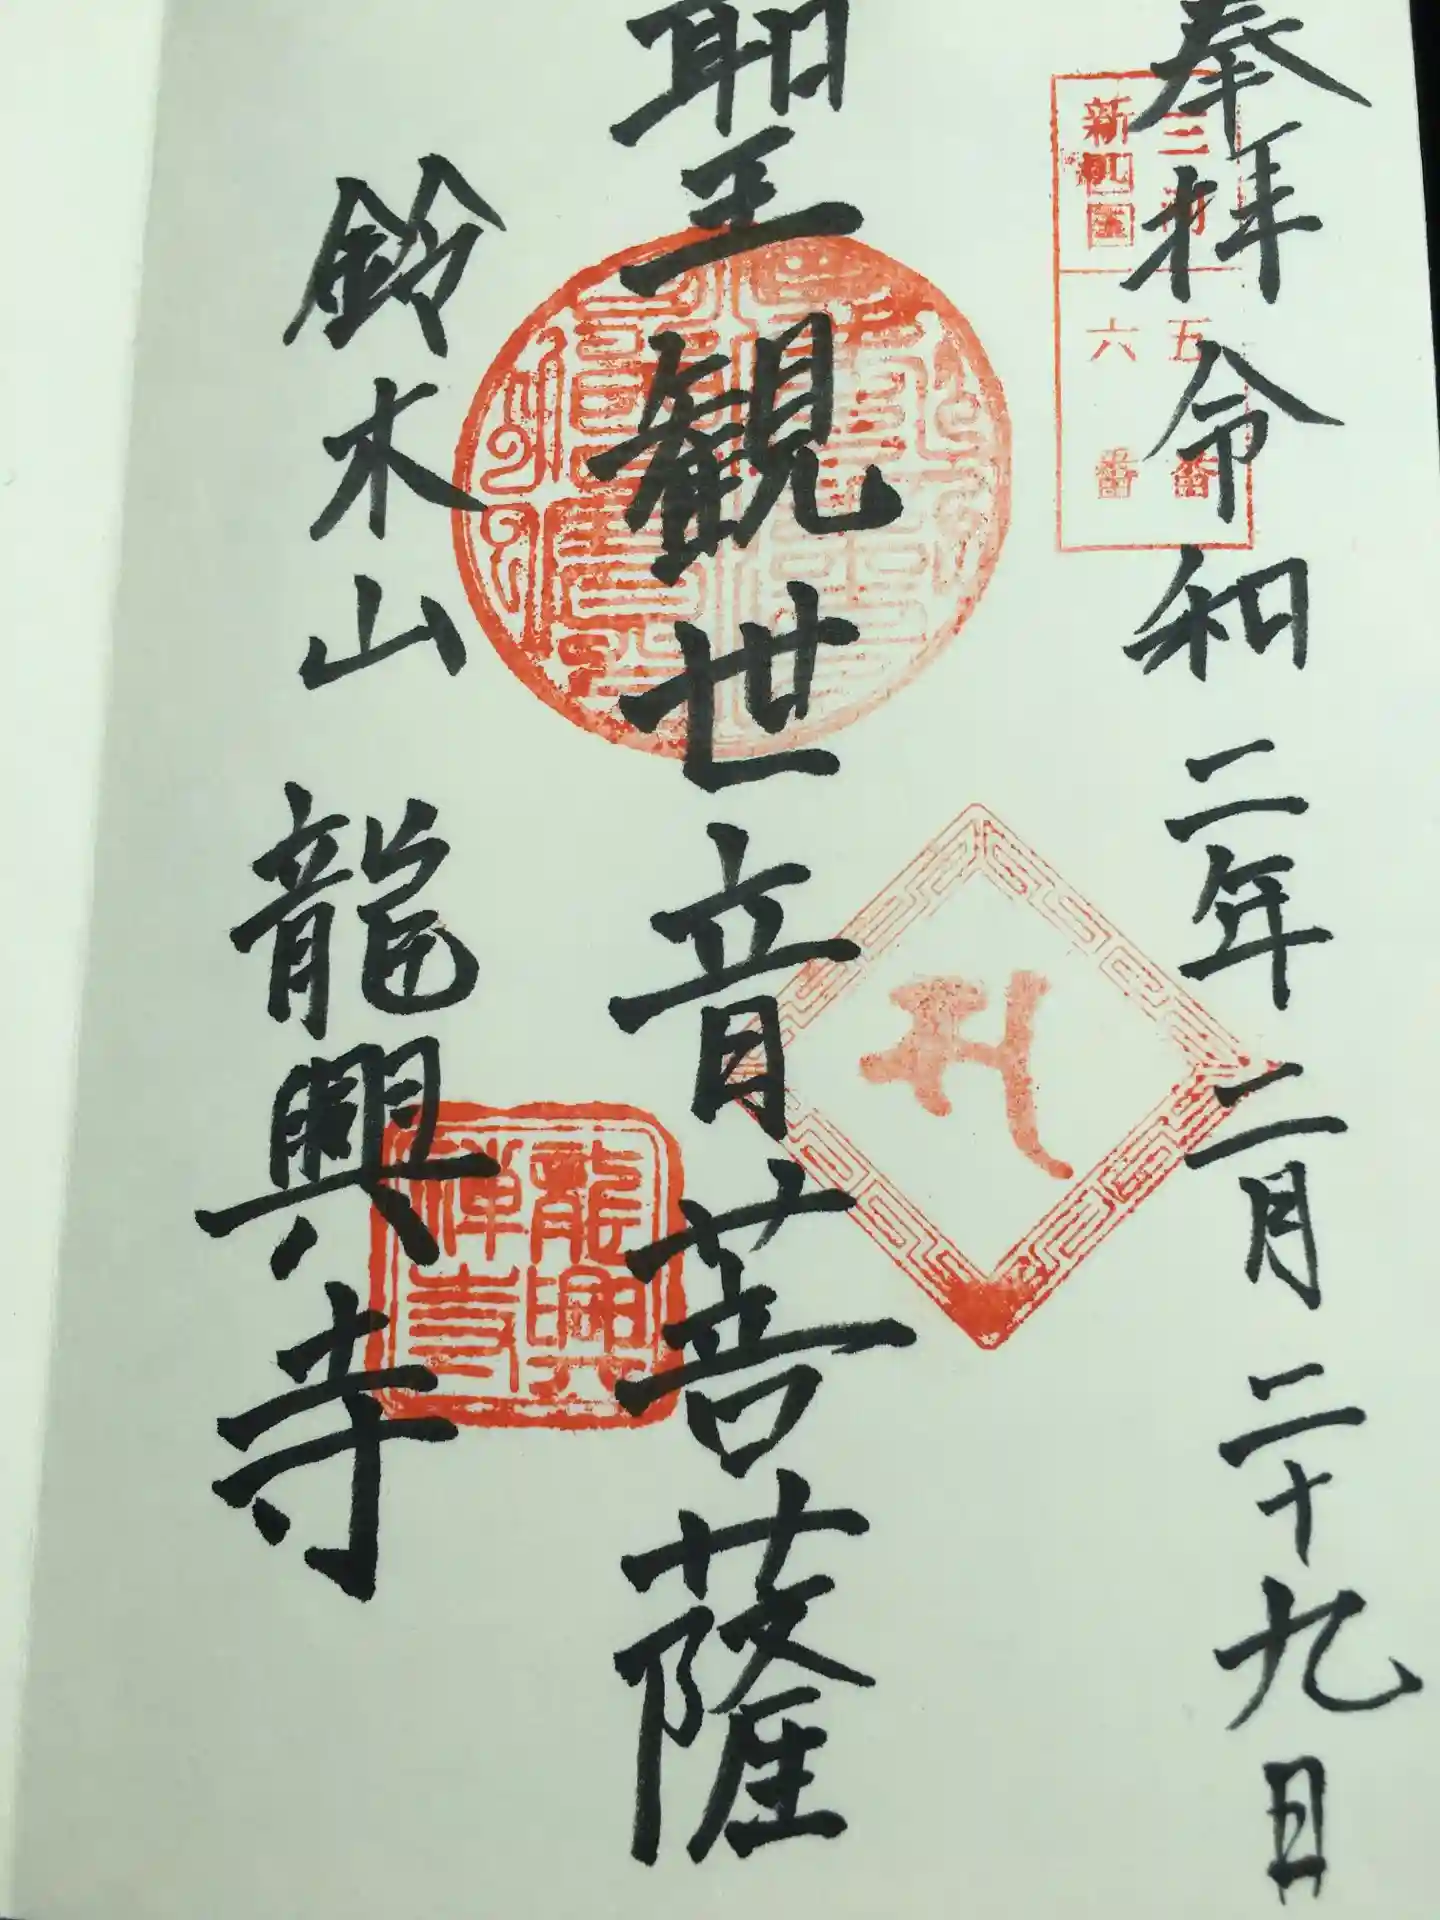 奉拝 令和二年二月二十九日
聖観世音菩薩
鈴木山 龍興寺
三河 五番
新四国 六番
龍興禅寺